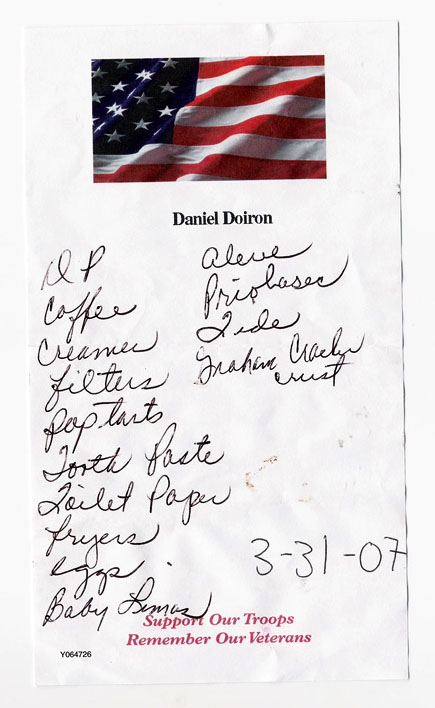 Daniel Doiron
D P
Coffee
Creamer
filters
pop tarts
Tooth Paste
Toilet Paper
fryers
eggs
Baby Limas
Aleve
Priobasec
Tide
Graham Cracker
crust
3-31-07
Support Our Troops
Remember Our Veterans
Y064726